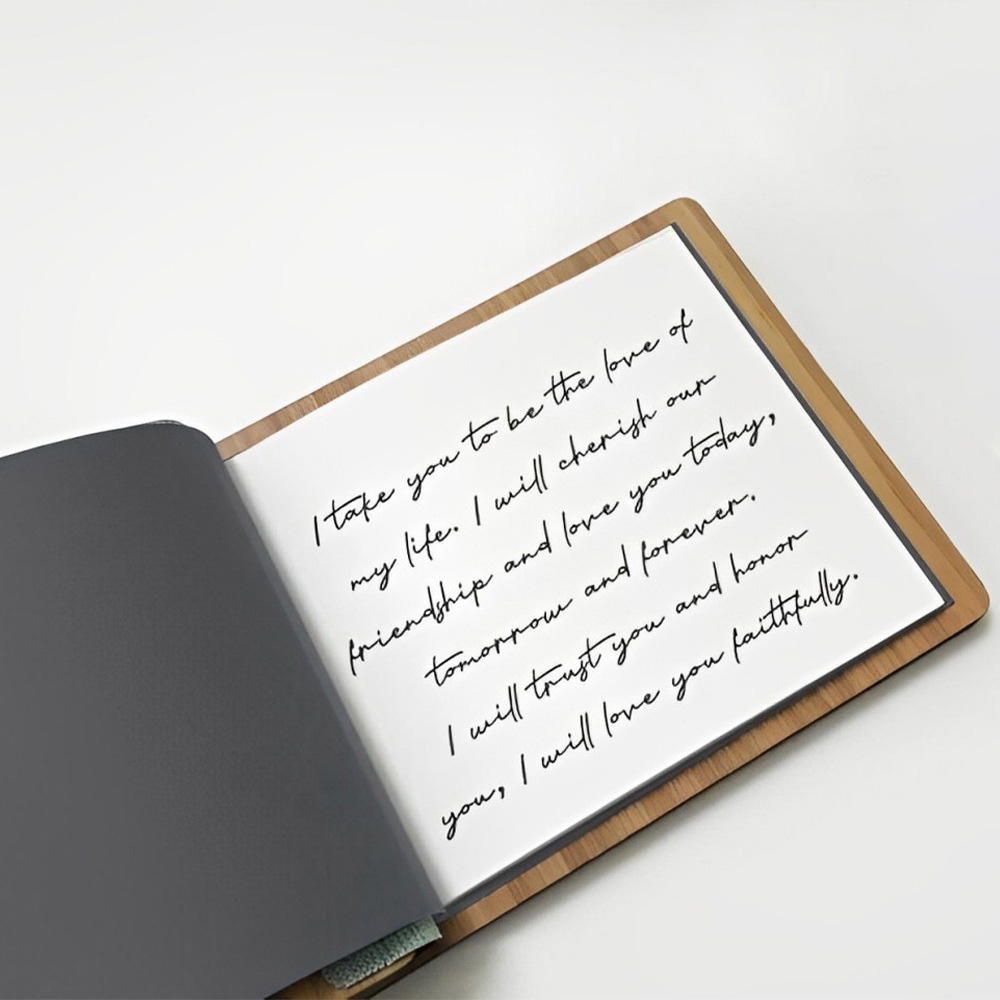 I take you to be the love of
my life. I will cherish our
friendship and love you today,
tomorrow and forever.
I will trust you and honor
you, I will love you faithfully.